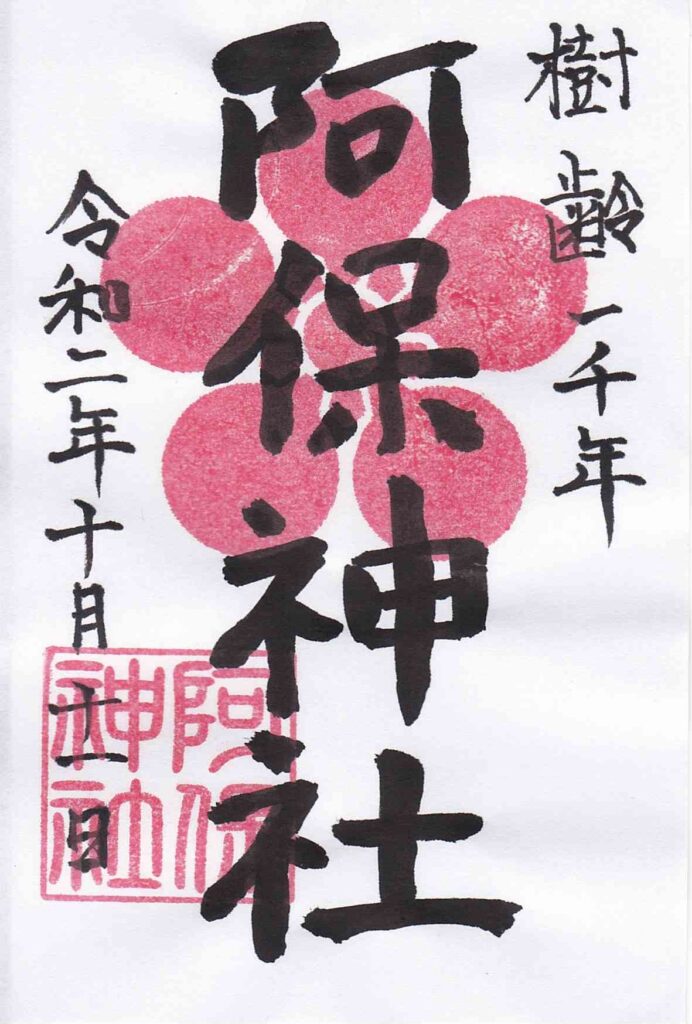 樹齢一千年
阿保神社
令和二年十月十一日
阿保
神社